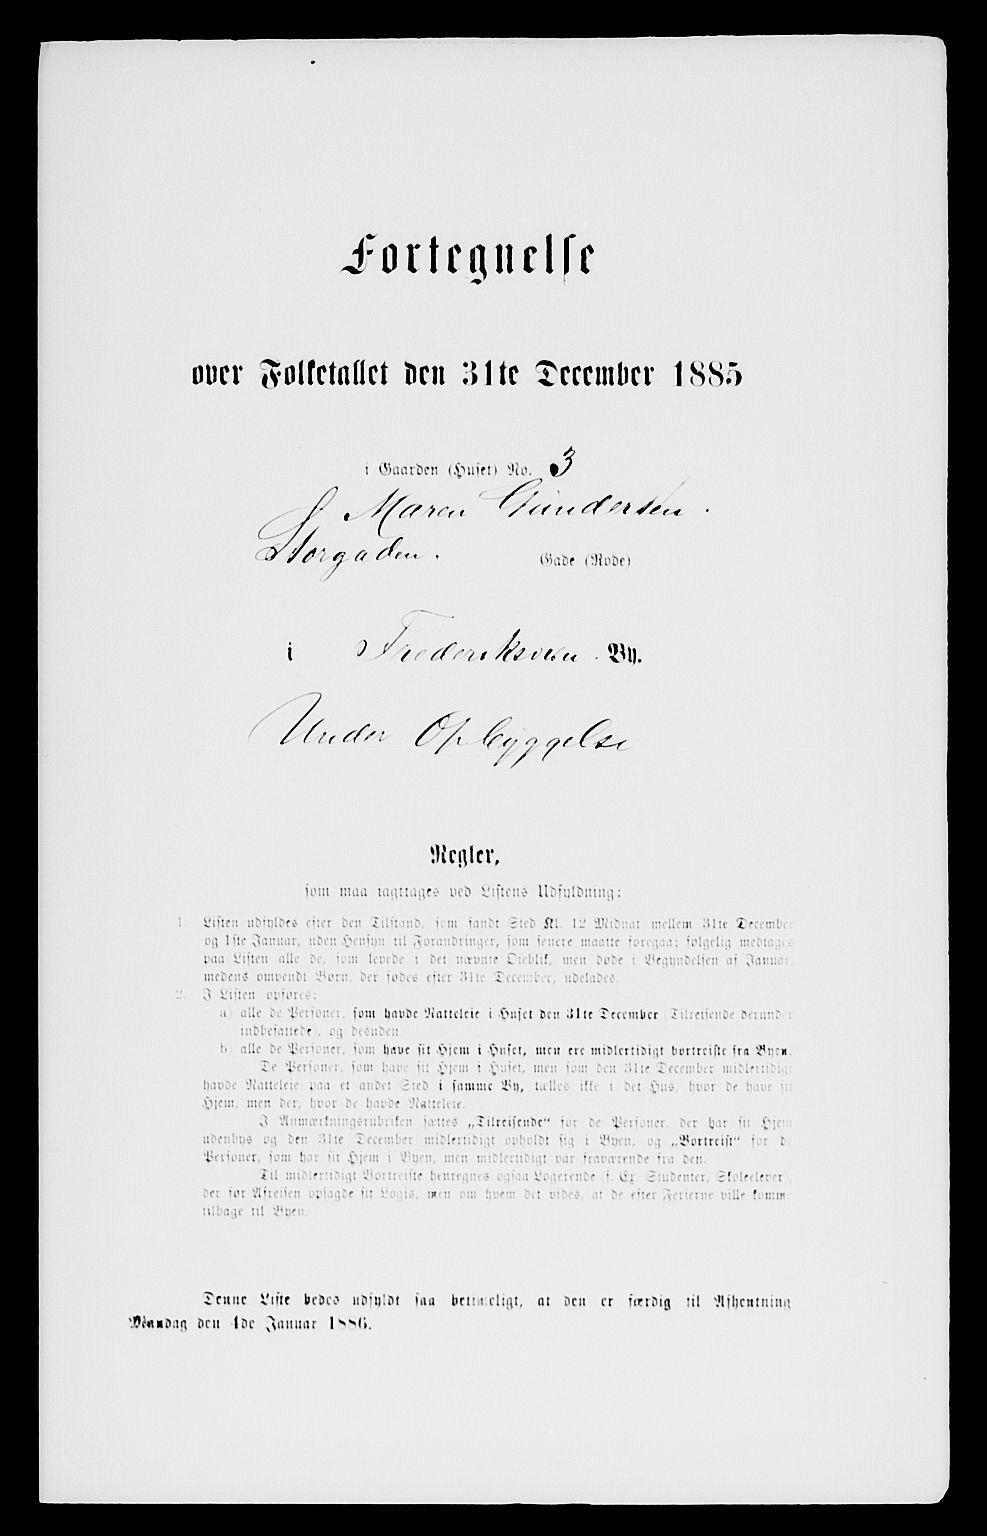 Fortegnelse
over Folketallet den 31te December 1885
i Gaarden (Huset) No. 3
Maren Gundersen.
Storgaden. Gade (Rode)
i Frederiksværn. By.
Under Opbyggelse
Regler,
som maa iagttages ved Listens Udfyldning:
1. Listen udfyldes efter den Tilstand, som fandt Sted Kl. 12 Midnat mellem 31te December
og 1ste Januar, uden Hensyn til Forandringer, som senere maatte foregaa; følgelig medtages
paa Listen alle de, som levede i det nævnte Øieblik, men døde i Begyndelsen af Januar,
medens omvendt Børn, der fødes efter 31te December, udelades.
2. I Listen opføres:
a) alle de Personer, som havde Natteleie i Huset den 31te December (Tilreisende derunder
indbefattede), og desuden
b) alle de Personer, som have sit Hjem i Huset, men ere midlertidigt bortreiste fra Byen.
De Personer, som have sit Hjem i Huset, men som den 31te December midlertidigt
havde Natteleie paa et andet Sted i samme By, tælles ikke i det Hus, hvor de have sit
Hjem, men der, hvor de havde Natteleie.
I Anmærkningsrubriken sættes „Tilreisende“ for de Personer, der har sit Hjem
udenbys og den 31te December midlertidigt opholdt sig i Byen, og „Bortreist“ for de
Personer, som har sit Hjem i Byen, men midlertidigt var fraværende fra den.
Til midlertidigt Bortreiste henregnes ogsaa Logerende (f. Ex. Studenter, Skoleelever),
der før Afreisen opsagde sit Logis, men om hvem det vides, at de efter Ferierne ville komme
tilbage til Byen.
Denne Liste bedes udfyldt saa betimeligt, at den er færdig til Afhentning
Mandag den 4de Januar 1886.